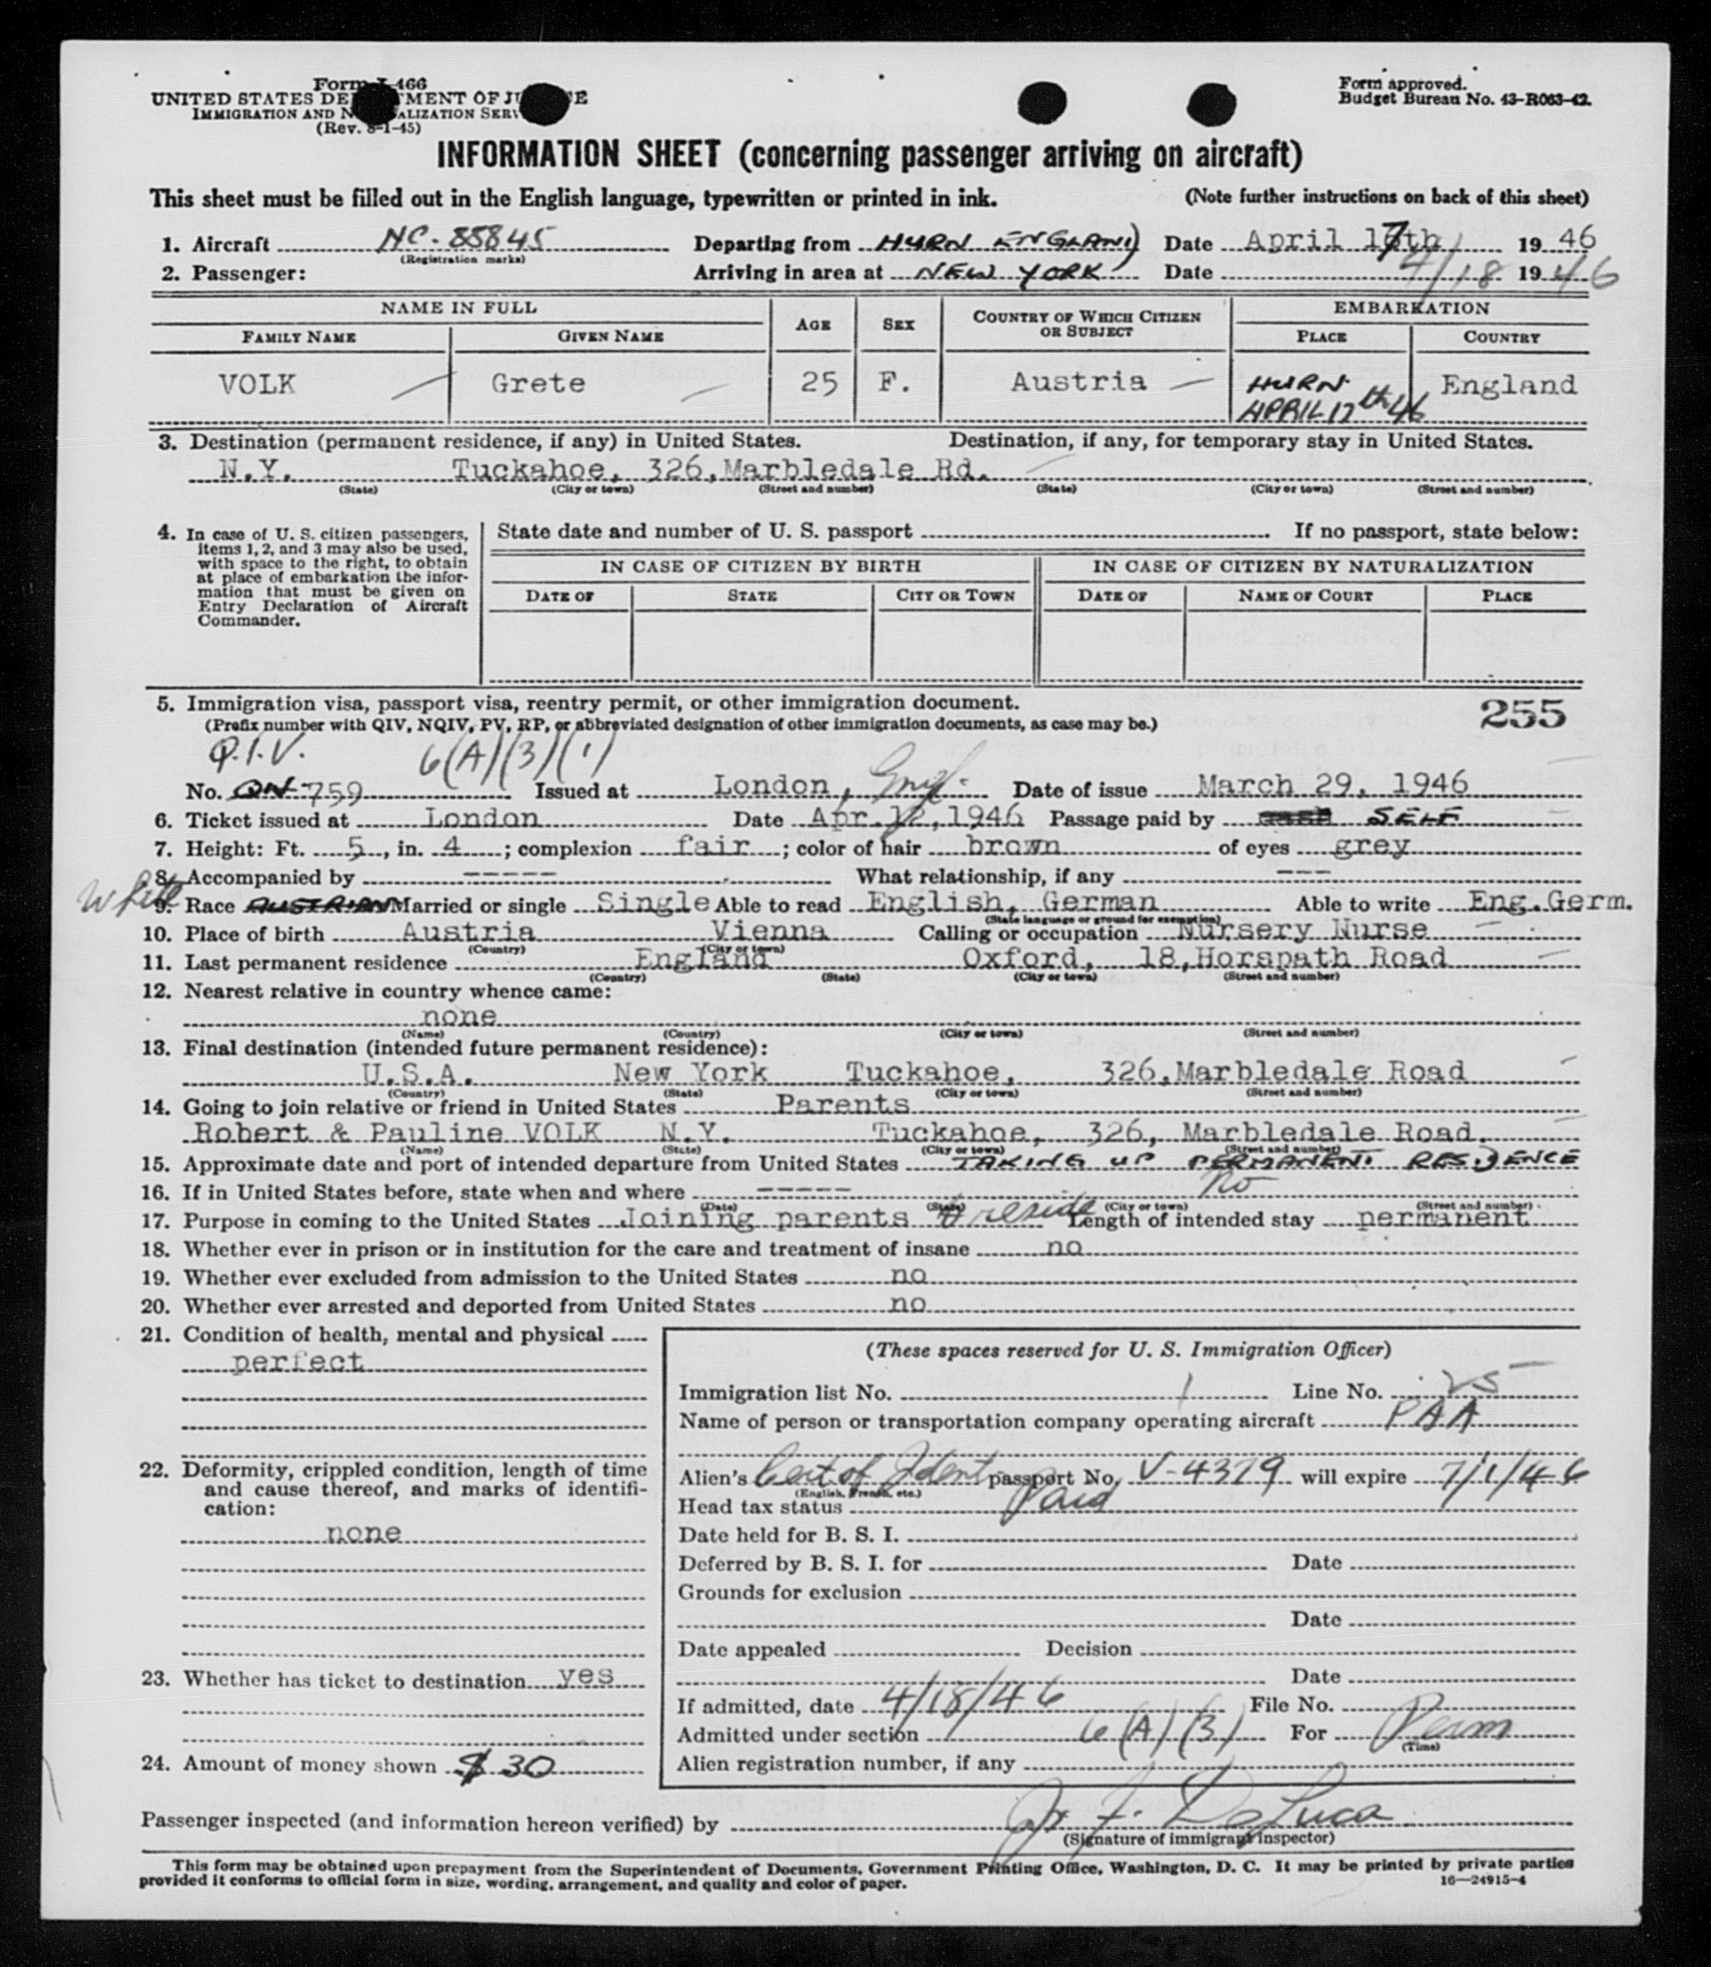 Form I-466
UNITED STATES DEPARTMENT OF JUSTICE
IMMIGRATION AND NATURALIZATION SERVICE
(Rev. 8-1-45)
Form approved.
Budget Bureau No. 43-R063-42.
INFORMATION SHEET (concerning passenger arriving on aircraft)
This sheet must be filled out in the English language, typewritten or printed in ink. (Note further instructions on back of this sheet)
1. Aircraft NC-88845 Departing from HURN ENGLAND Date April 17th 1946
(Registration marks)
2. Passenger: Arriving in area at NEW YORK Date 4/18 1946
NAME IN FULL AGE SEX COUNTRY OF WHICH CITIZEN OR SUBJECT EMBARKATION
FAMILY NAME GIVEN NAME PLACE COUNTRY
VOLK Grete 25 F. Austria HURN England
APRIL 17th 46
3. Destination (permanent residence, if any) in United States. Destination, if any, for temporary stay in United States.
N.Y. Tuckahoe, 326, Marbledale Rd.
(State) (City or town) (Street and number) (State) (City or town) (Street and number)
4. In case of U. S. citizen passengers, items 1, 2, and 3 may also be used, with space to the right, to obtain at place of embarkation the information that must be given on Entry Declaration of Aircraft Commander.
State date and number of U. S. passport If no passport, state below:
IN CASE OF CITIZEN BY BIRTH IN CASE OF CITIZEN BY NATURALIZATION
DATE OF STATE CITY OR TOWN DATE OF NAME OF COURT PLACE
5. Immigration visa, passport visa, reentry permit, or other immigration document. 255
(Prefix number with QIV, NQIV, PV, RP, or abbreviated designation of other immigration documents, as case may be.)
Q.I.V. 6(A)(3)(1)
No. QN-759 Issued at London, Engl. Date of issue March 29, 1946
6. Ticket issued at London Date Apr.12,1946 Passage paid by SELF
7. Height: Ft. 5, in. 4; complexion fair; color of hair brown of eyes grey
8. Accompanied by ----- What relationship, if any ---
White
9. Race AUSTRIAN Married or single Single Able to read English, German Able to write Eng.Germ.
(State language or ground for exemption)
10. Place of birth Austria Vienna Calling or occupation Nursery Nurse
(Country) (City or town)
11. Last permanent residence England Oxford, 18,Horspath Road
(Country) (State) (City or town) (Street and number)
12. Nearest relative in country whence came:
none
(Name) (Country) (City or town) (Street and number)
13. Final destination (intended future permanent residence):
U.S.A. New York Tuckahoe, 326,Marbledale Road
(Country) (State) (City or town) (Street and number)
14. Going to join relative or friend in United States Parents
Robert & Pauline VOLK N.Y. Tuckahoe, 326, Marbledale Road.
(Name) (State) (City or town) (Street and number)
15. Approximate date and port of intended departure from United States TAKING UP PERMANENT RESIDENCE
16. If in United States before, state when and where ----- No
(Date) (State) (City or town) (Street and number)
17. Purpose in coming to the United States Joining parents to reside Length of intended stay permanent
18. Whether ever in prison or in institution for the care and treatment of insane no
19. Whether ever excluded from admission to the United States no
20. Whether ever arrested and deported from United States no
21. Condition of health, mental and physical
perfect
22. Deformity, crippled condition, length of time and cause thereof, and marks of identification:
none
23. Whether has ticket to destination yes
24. Amount of money shown $ 30
(These spaces reserved for U. S. Immigration Officer)
Immigration list No. 1 Line No. 25
Name of person or transportation company operating aircraft PAA
Alien's Cert of Ident passport No. V-4379 will expire 7/1/46
(English, French, etc.)
Head tax status Paid
Date held for B. S. I.
Deferred by B. S. I. for Date
Grounds for exclusion
Date
Date appealed Decision
Date
If admitted, date 4/18/46 File No.
Admitted under section 6(A)(3) For Perm
(Time)
Alien registration number, if any
Passenger inspected (and information hereon verified) by
(Signature of immigrant inspector)
This form may be obtained upon prepayment from the Superintendent of Documents, Government Printing Office, Washington, D. C. It may be printed by private parties
provided it conforms to official form in size, wording, arrangement, and quality and color of paper. 16—24915-4